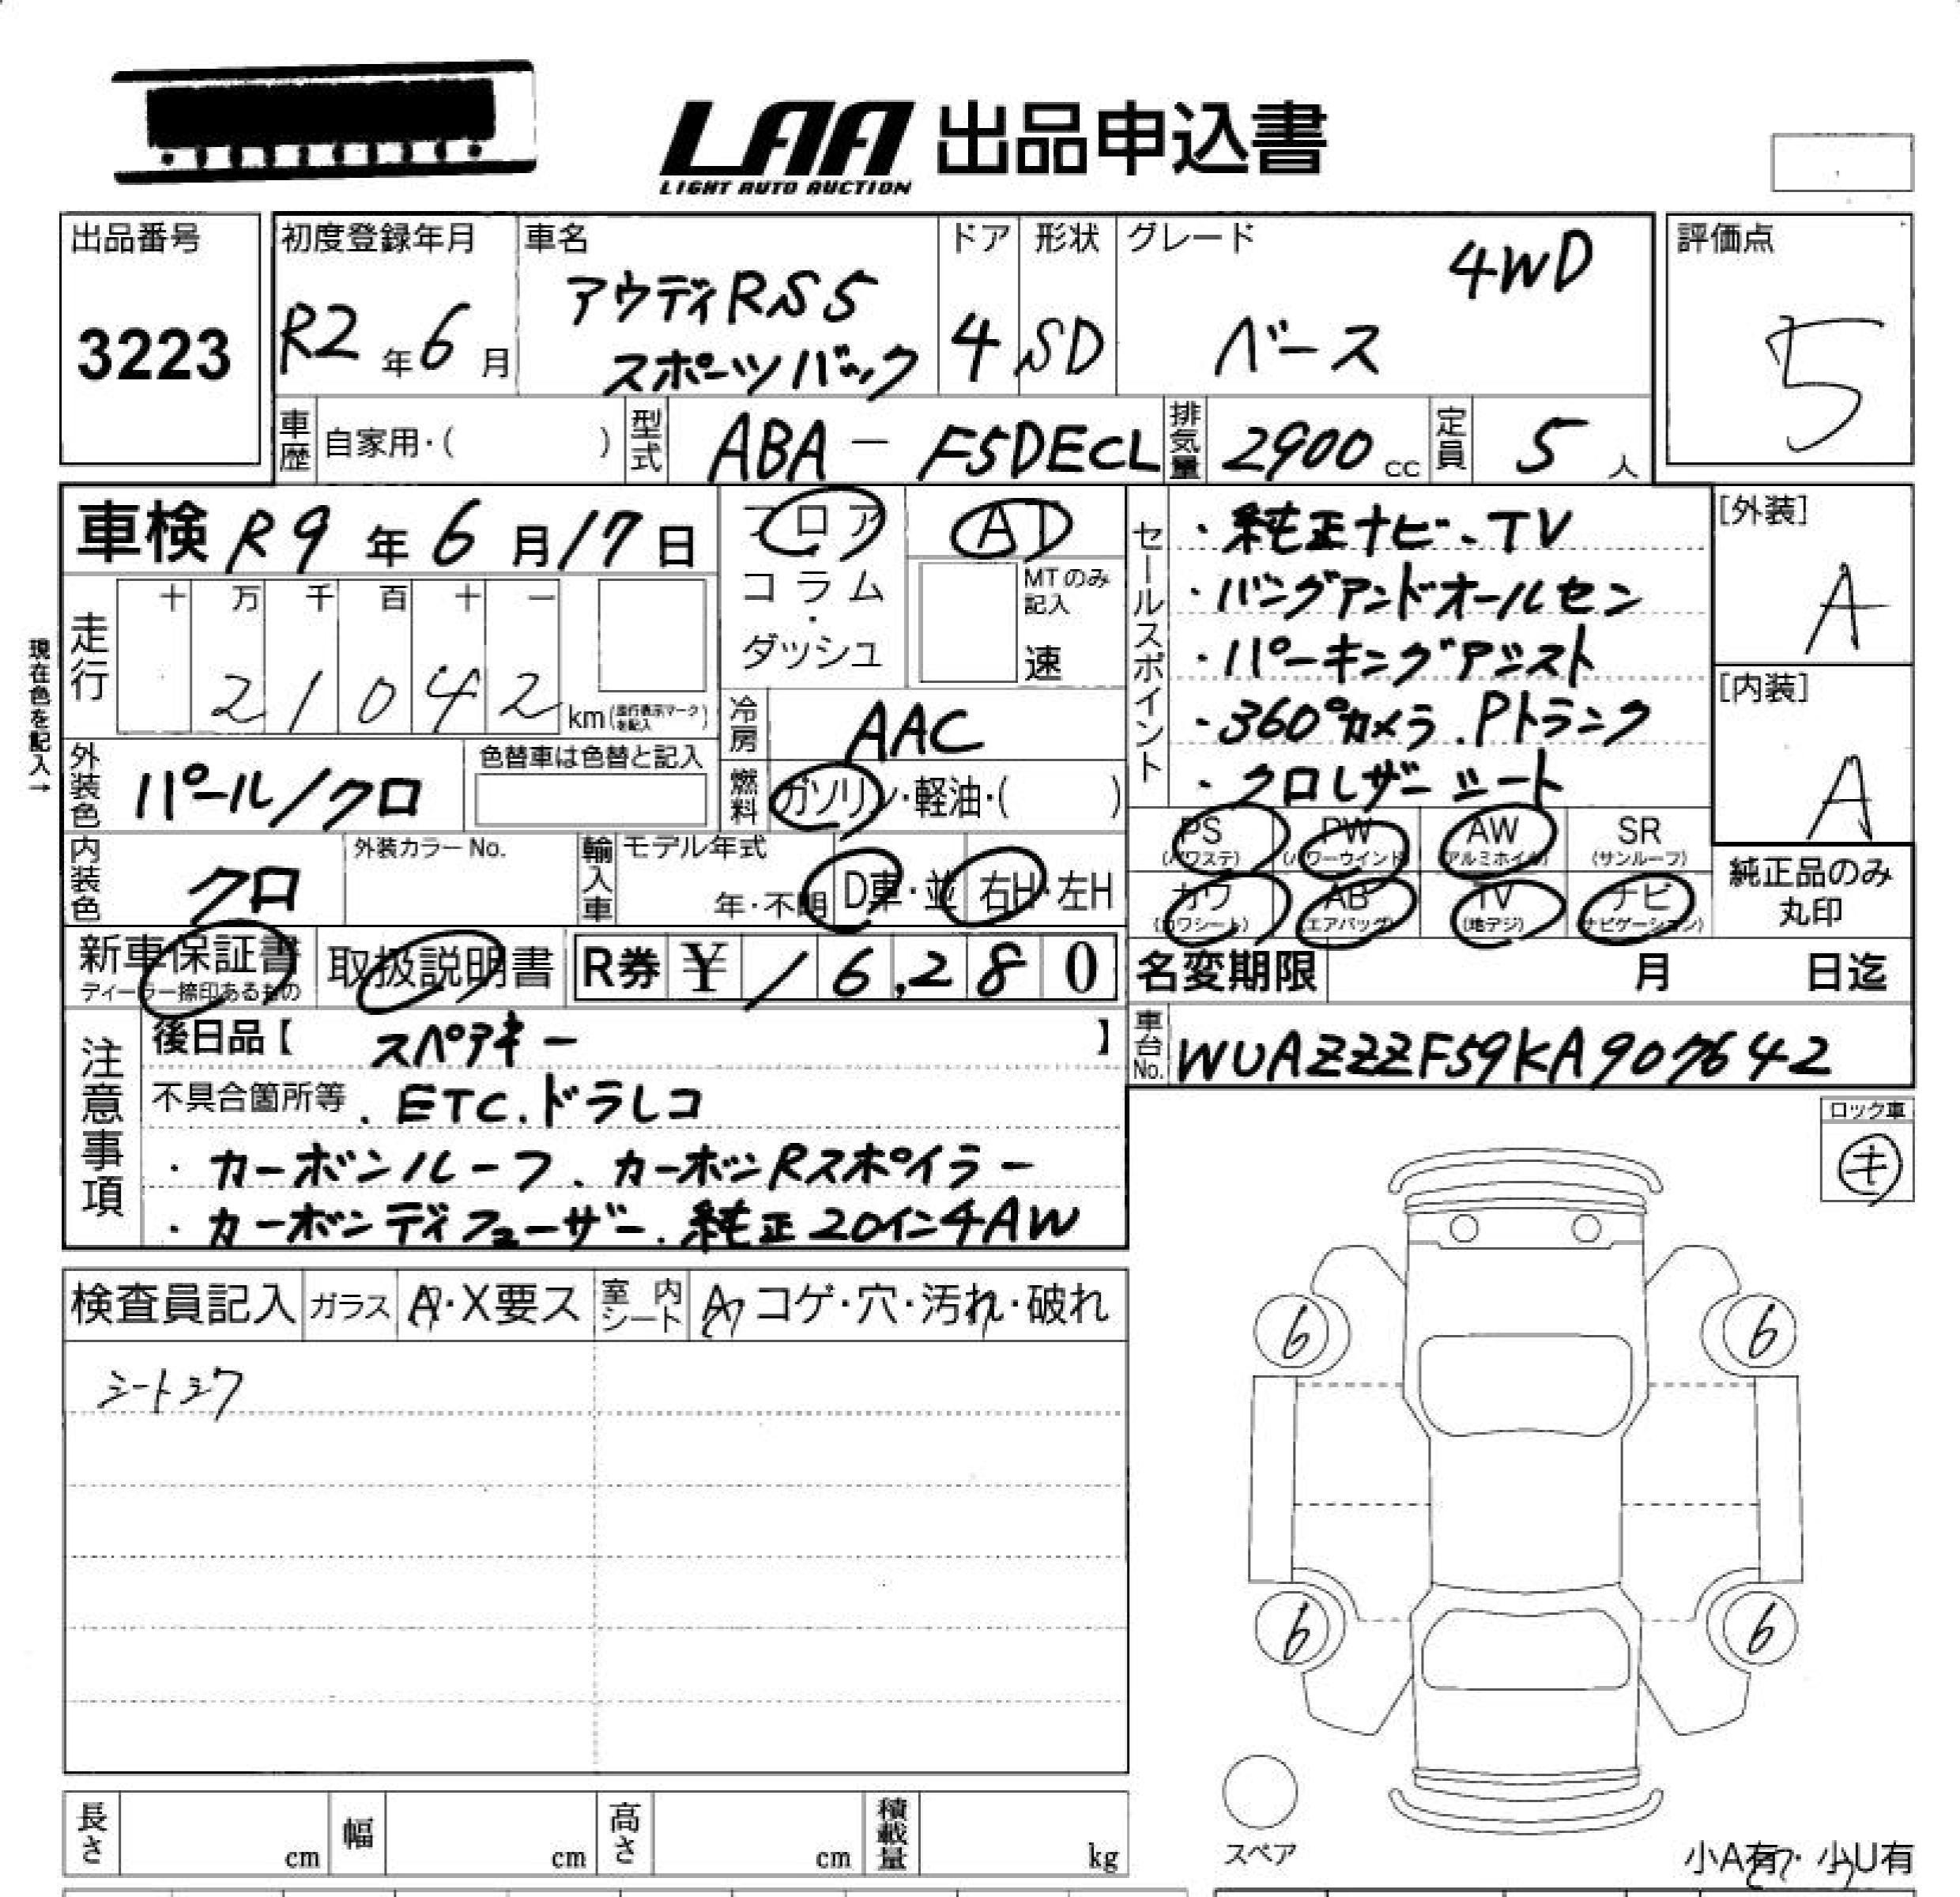 LAA 出品申込書
LIGHT AUTO AUCTION
出品番号
3223
初度登録年月
R2年6月
車名
アウディRS5
スポーツバック
ドア
4
形状
SD
グレード
4WD
ベース
評価点
5
車歴 自家用・( )
型式 ABA-F5DECL
排気量 2900 cc
定員 5 人
現在色を記入→
車検 R9年6月17日
走行
十 万 千 百 十 一
2 1 0 4 2 km (走行表示マークを記入)
フロア
コラム
・
ダッシュ
AT
MTのみ記入
速
冷房 AAC
燃料 ガソリン・軽油・( )
外装色 パール/クロ
色替車は色替と記入
内装色 クロ
外装カラーNo.
輸入車 モデル年式
年・不明 D車・並 右H・左H
新車保証書
ディーラー捺印あるもの
取扱説明書
R券 ¥ 16,280
セールスポイント
・純正ナビ、TV
・バングアンドオールセン
・パーキングアシスト
・360°カメラ.Pトランク
・クロレザーシート
[外装]
A
[内装]
A
PS (パワステ)
PW (パワーウインド)
AW (アルミホイル)
SR (サンルーフ)
カワ (カワシート)
AB (エアバッグ)
TV (地デジ)
ナビ (ナビゲーション)
純正品のみ
丸印
名変期限 月 日迄
車台No. WUAZZZF59KA907642
注意事項
後日品【 スペアキー 】
不具合箇所等 . ETC.ドラレコ
・カーボンルーフ、カーボンRスポイラー
・カーボンディフューザー.純正20インチAW
ロック車
キ
検査員記入 ガラス A・X要ス 室内シート A コゲ・穴・汚れ・破れ
シートシワ
6
6
6
6
スペア
小A有・小U有
長さ cm 幅 cm 高さ cm 積載量 kg